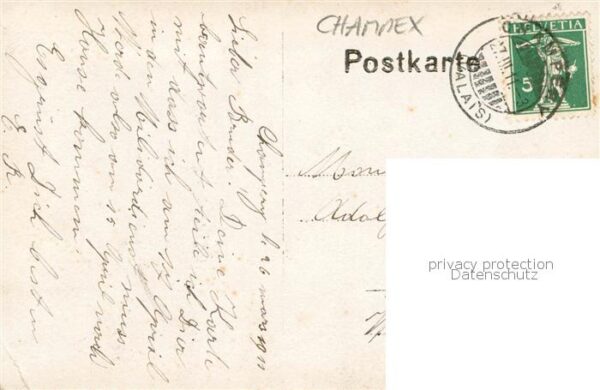 CHAMPEX
Postkarte
HELVETIA
5
(VALAIS)
Champery d. 26 März 1911
Lieber Bruder. Deine Karte
beantwortet teile ich Dir
mit dass ich am 12 April
in den Militärdienst muss
Werd. also am 15 April nach
Hause kommen
Es grüsst Dich bestens
E. R.
Mon
Adol
privacy protection
Datenschutz